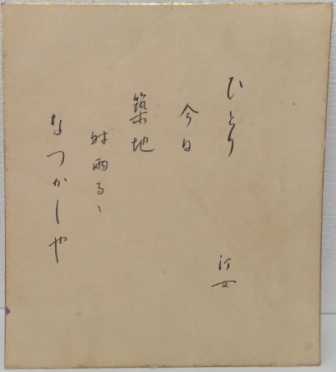 ひとり
今日
築地
時雨るゝ
なつかしや
汀女